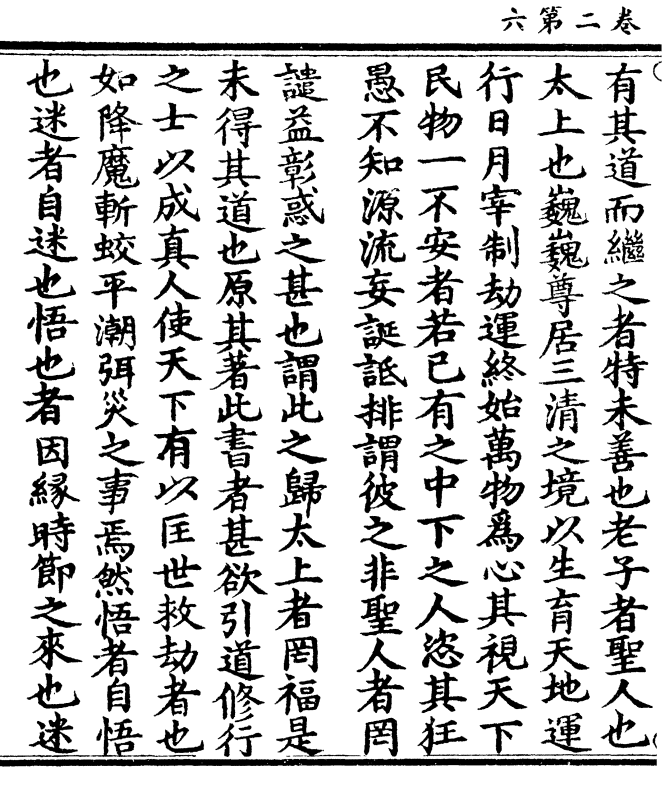 卷二第六
有其道而繼之者特未善也老子者聖人也
太上也巍巍尊居三清之境以生育天地運
行日月宰制劫運終始萬物爲心其視天下
民物一不安者若已有之中下之人恣其狂
愚不知源流妄誕詆排謂彼之非聖人者罔
譴益彰惑之甚也謂此之歸太上者罔福是
未得其道也原其著此書者甚欲引道修行
之士以成真人使天下有以匡世救劫者也
如降魔斬蛟平潮弭災之事焉然悟者自悟
也迷者自迷也悟也者因緣時節之來也迷